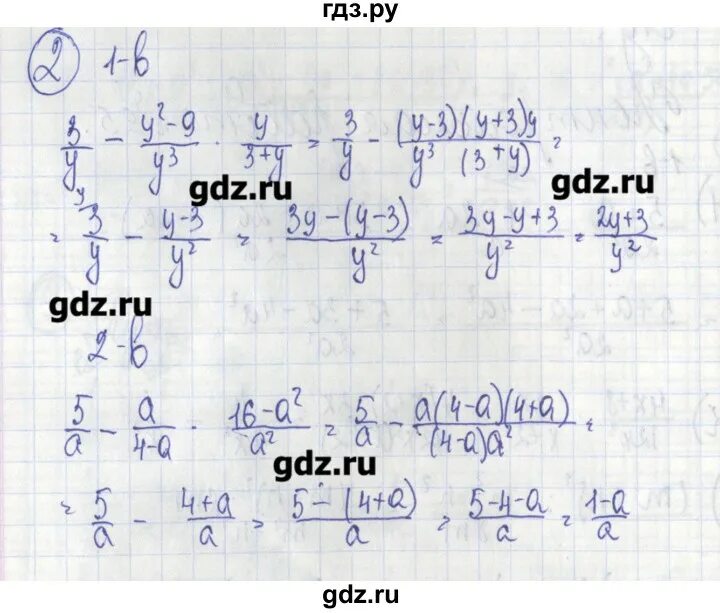 гдз.ру
2 1-в
3/y - (y²-9)/y³ · y/(3+y) = 3/y - (y-3)(y+3)y/(y³(3+y)) =
gdz.ru
gdz.ru
= 3/y - (y-3)/y² = (3y-(y-3))/y² = (3y-y+3)/y² = (2y+3)/y²
gdz.ru
2-в
5/a - a/(4-a) · (16-a²)/a² = 5/a - a(4-a)(4+a)/((4-a)a²) =
gdz.ru
= 5/a - (4+a)/a = (5-(4+a))/a = (5-4-a)/a = (1-a)/a
gdz.ru